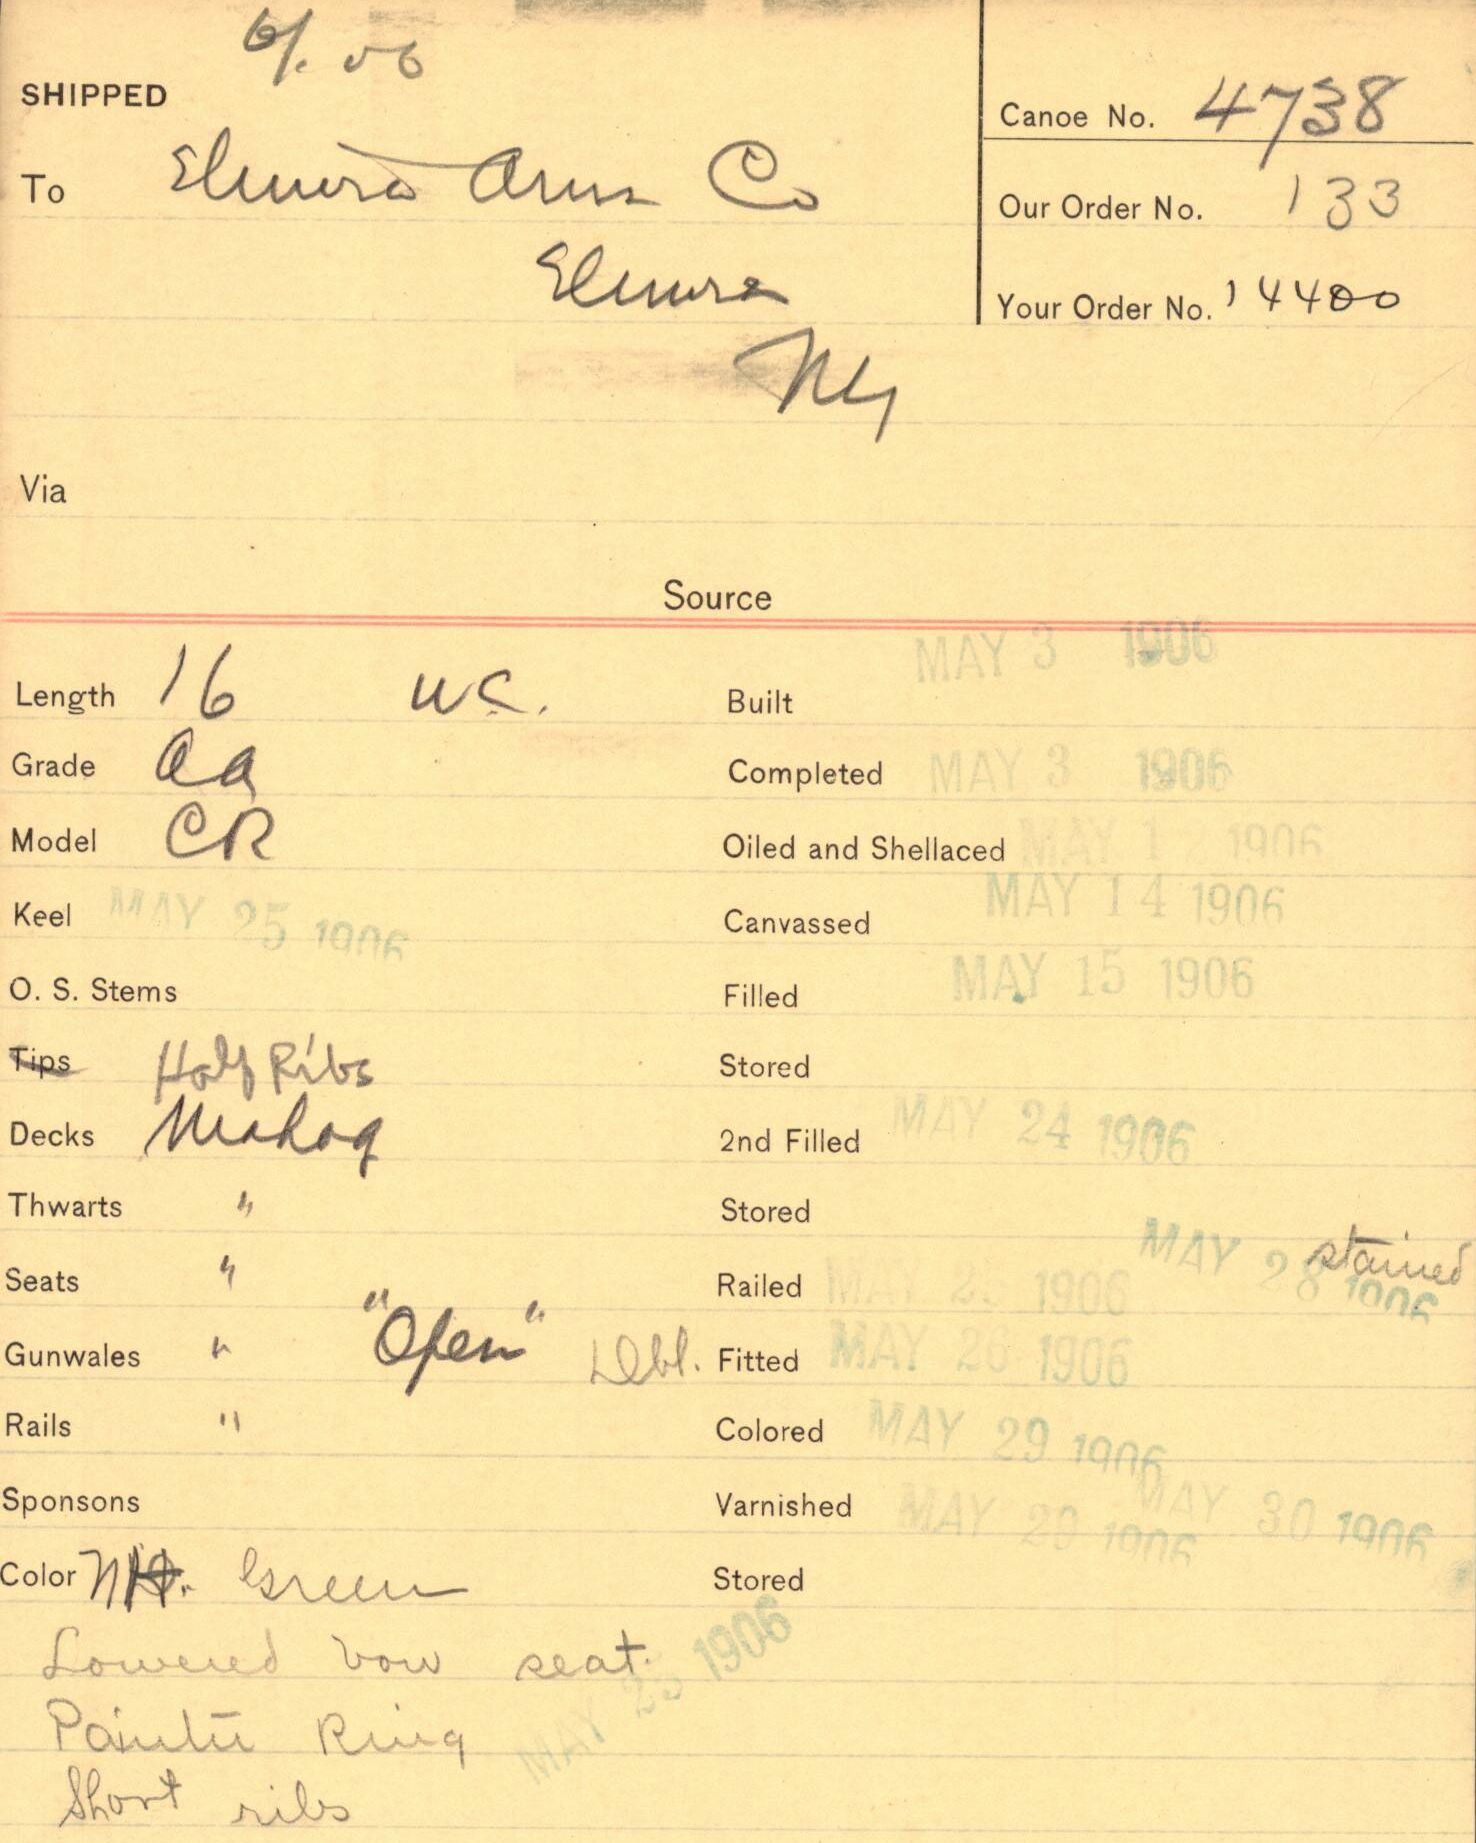 6/. 06
SHIPPED
Canoe No. 4738
To Elmira Arms Co
Our Order No. 133
Elmira
Your Order No. 14400
NY
Via
Source
MAY 3 1906
Length 16 W.C. Built
Grade AA Completed MAY 3 1906
Model CR Oiled and Shellaced MAY 1 1906
Keel MAY 25 1906 Canvassed MAY 14 1906
O. S. Stems Filled MAY 15 1906
Tips Half Ribs Stored
Decks Mahog 2nd Filled MAY 24 1906
Thwarts " Stored
MAY 28 1906 stained
Seats " Railed MAY 25 1906
Gunwales " "Open" Dbl. Fitted MAY 26 1906
Rails " Colored MAY 29 1906
Sponsons Varnished MAY 29 1906 MAY 30 1906
Color Green Stored
Lowered bow seat.
MAY 25 1906
Painter Ring
Short ribs